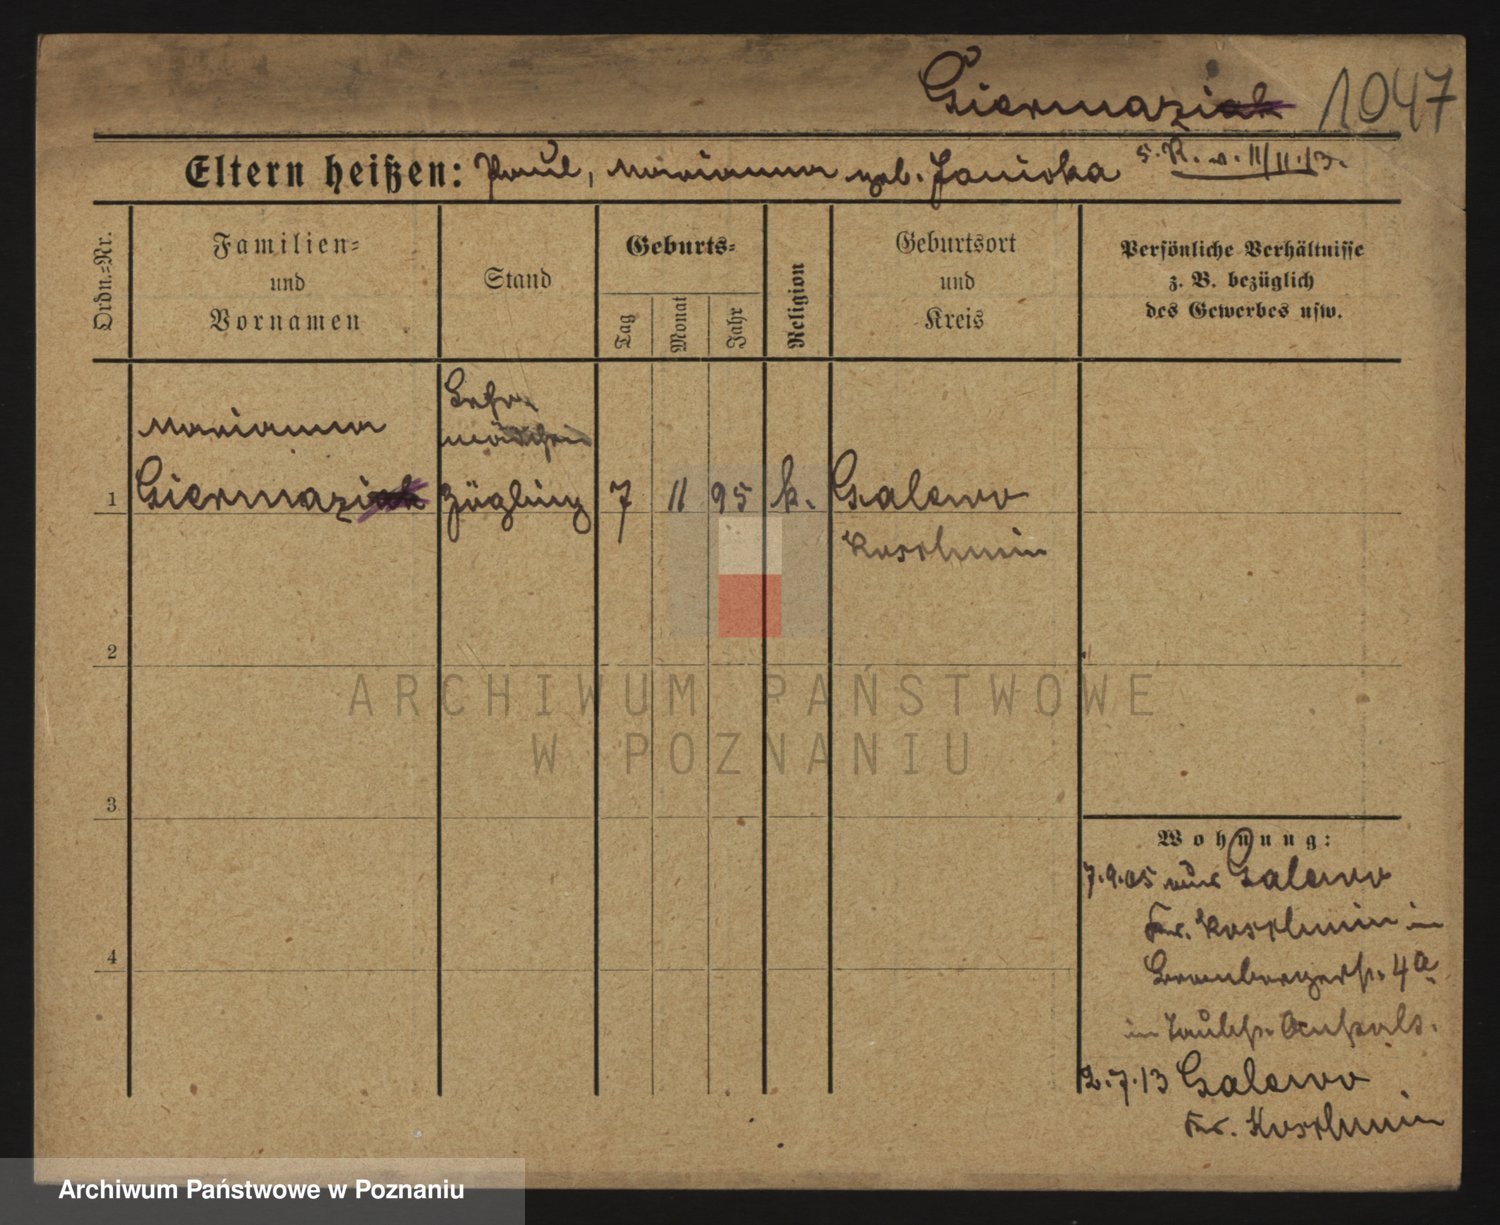 Giermaziak 1047
Eltern heißen: Paul, Marianna geb. Janicka s. R. v. 11/11.13.
Ordn.=Nr.
Familien=
und
Vornamen
Stand
Geburts=
Tag
Monat
Jahr
Religion
Geburtsort
und
Kreis
Persönliche Verhältnisse
z. B. bezüglich
des Gewerbes usw.
Marianna
mädchen
1 Giermaziak Zögling 7 11 95 k. Galewo
Koschmin
2
ARCHIWUM PAŃSTWOWE
W POZNANIU
3
Wohnung:
7.9.05 aus Galewo
Kr. Koschmin in
Brombergerstr. 4a
im Taubst. Anstalt.
4
2.7.13 Galewo
Kr. Koschmin
Archiwum Państwowe w Poznaniu